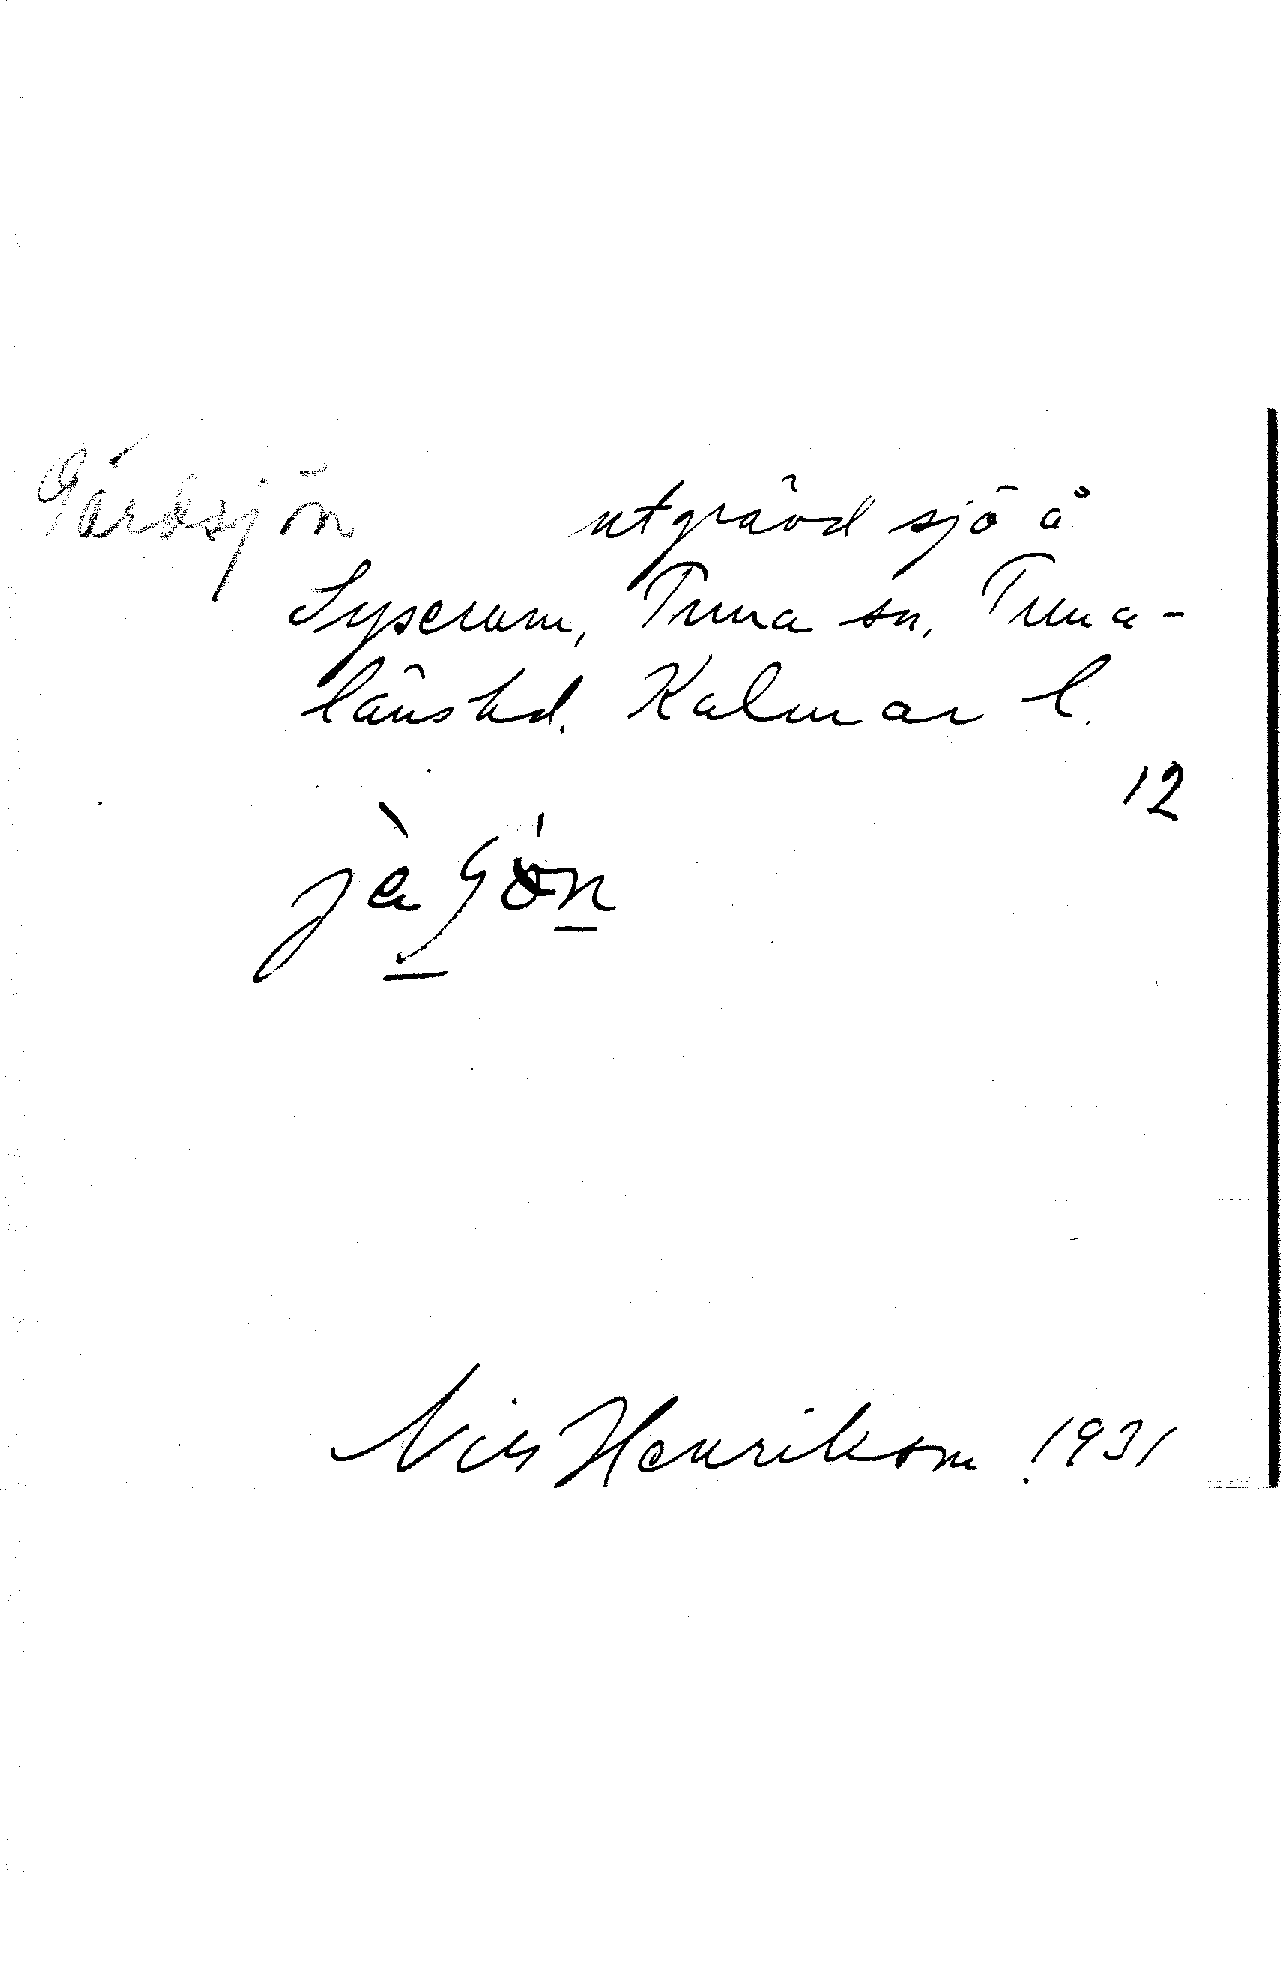 Gärdsjön utgrävd sjö å
Lyserum, Tuna sn, Tuna-
länshd. Kalmar l.
12
Nils Henrikson 1931